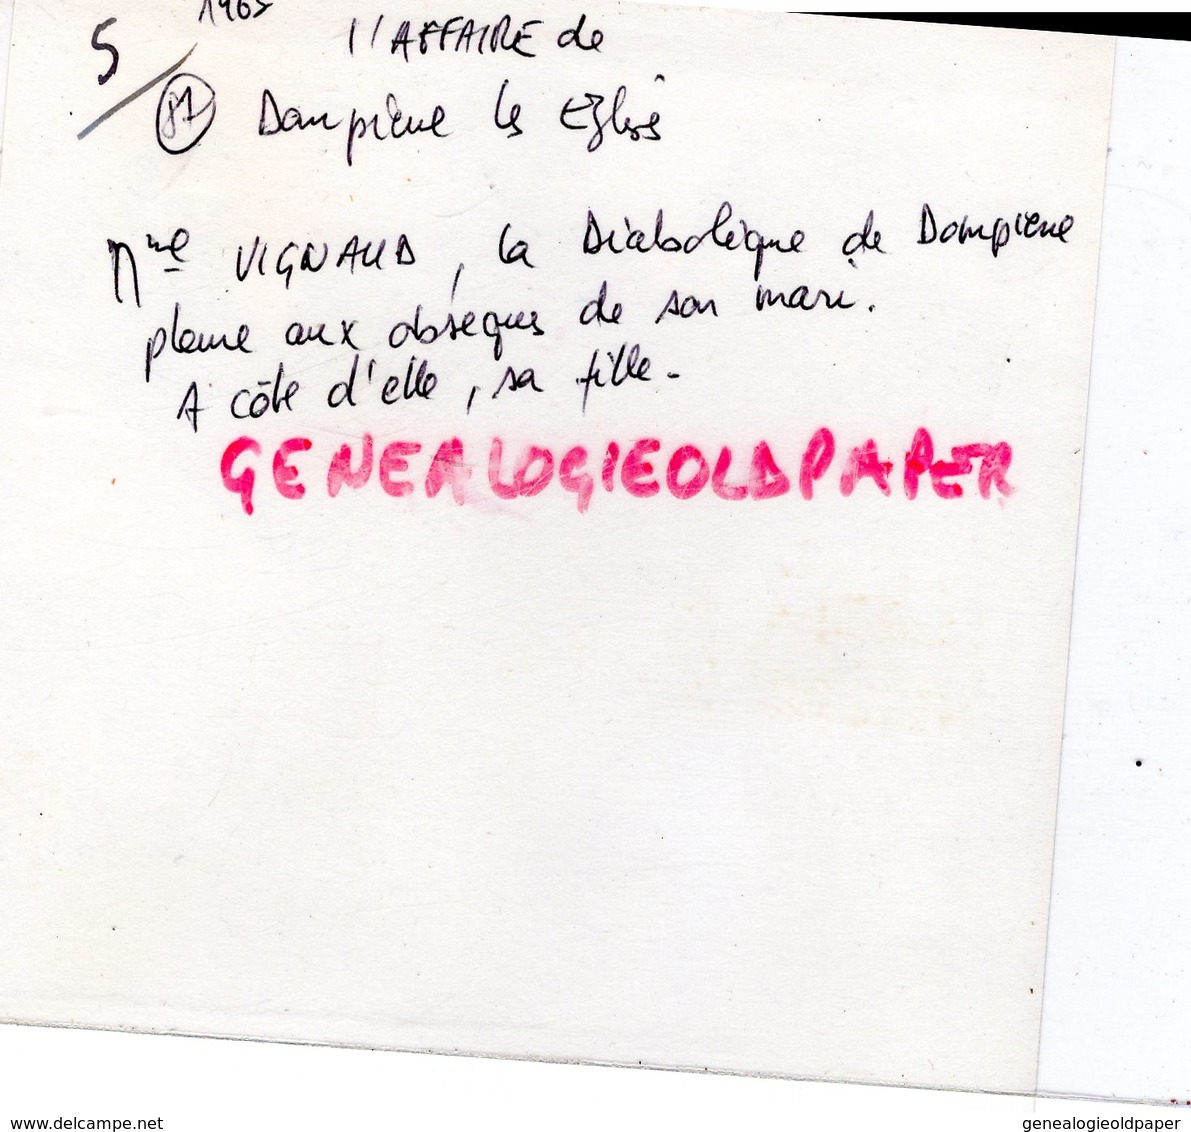 1965
5 l'AFFAIRE de
87 Dampierre les Eglises
Mme VIGNAUD, la Diabolique de Dampierre
pleure aux obsèques de son mari.
A côté d'elle, sa fille.
GENEALOGIEOLDPAPER
www.delcampe.net genealogieoldpaper